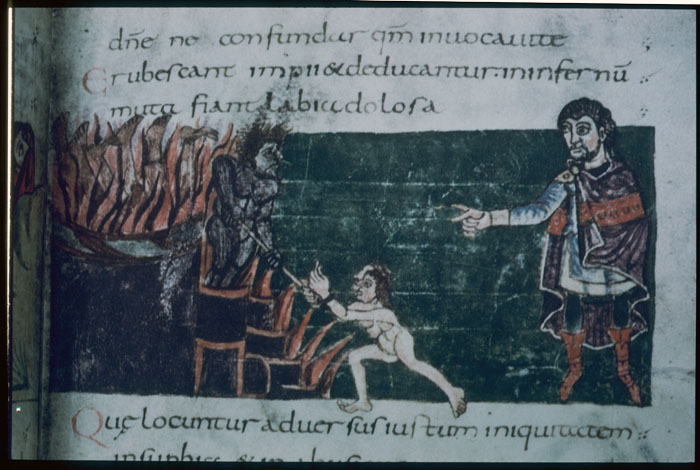 dn̄e ne confundar qm̄ inuocauite
Erubescant impii & deducantur. in infernū
muta fiant labia dolosa
Quę locuntur aduersus iustum iniquitatem